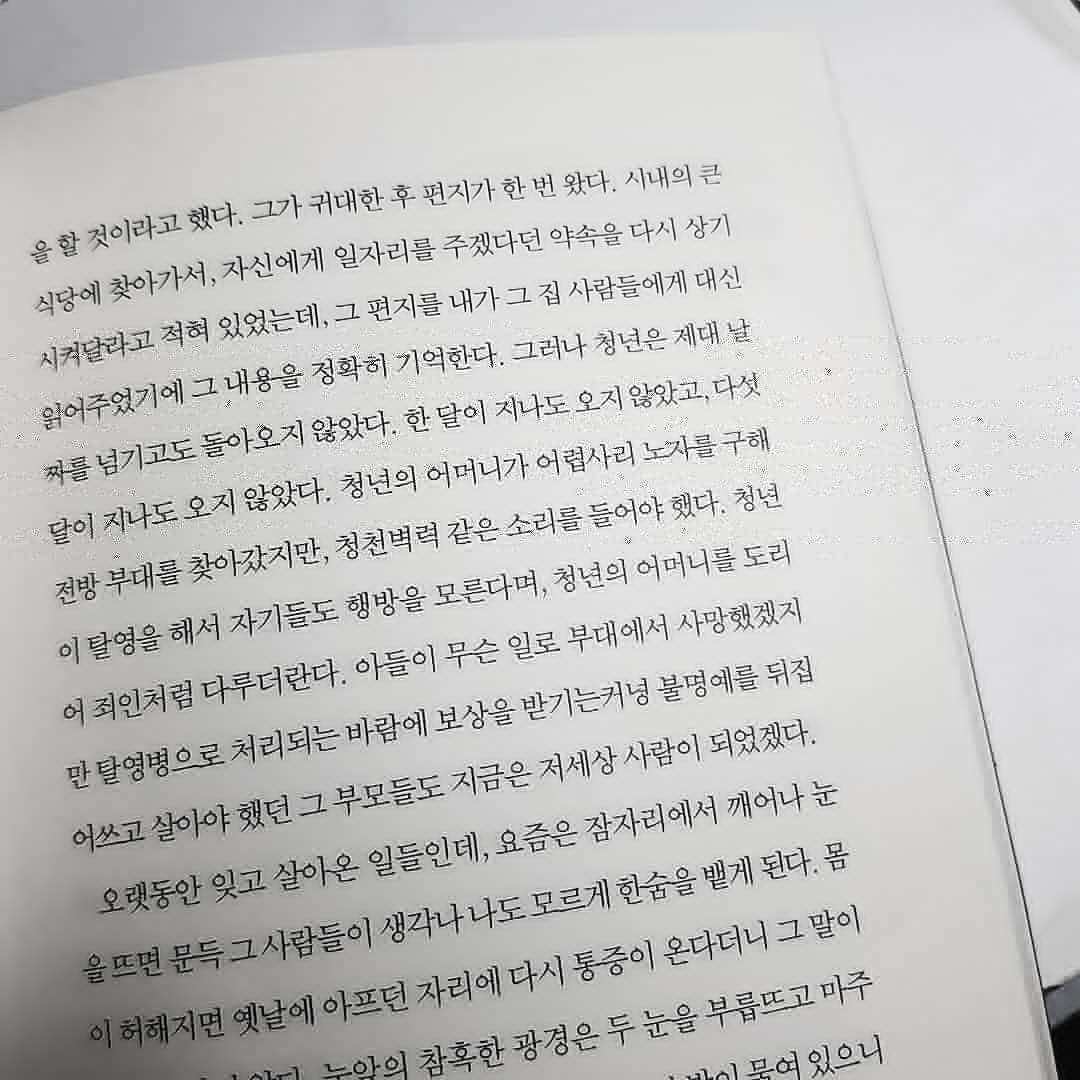 을 할 것이라고 했다. 그가 귀대한 후 편지가 한 번 왔다. 시내의 큰
식당에 찾아가서, 자신에게 일자리를 주겠다던 약속을 다시 상기
시켜달라고 적혀 있었는데, 그 편지를 내가 그 집 사람들에게 대신
읽어주었기에 그 내용을 정확히 기억한다. 그러나 청년은 제대 날
짜를 넘기고도 돌아오지 않았다. 한 달이 지나도 오지 않았고, 다섯
달이 지나도 오지 않았다. 청년의 어머니가 어렵사리 노자를 구해
전방 부대를 찾아갔지만, 청천벽력 같은 소리를 들어야 했다. 청년
이 탈영을 해서 자기들도 행방을 모른다며, 청년의 어머니를 도리
어 죄인처럼 다루더란다. 아들이 무슨 일로 부대에서 사망했겠지
만 탈영병으로 처리되는 바람에 보상을 받기는커녕 불명예를 뒤집
어쓰고 살아야 했던 그 부모들도 지금은 저세상 사람이 되었겠다.
오랫동안 잊고 살아온 일들인데, 요즘은 잠자리에서 깨어나 눈
을 뜨면 문득 그 사람들이 생각나 나도 모르게 한숨을 뱉게 된다. 몸
이 허해지면 옛날에 아프던 자리에 다시 통증이 온다더니 그 말이
눈앞의 참혹한 광경은 두 눈을 부릅뜨고 마주
묻여 있으니